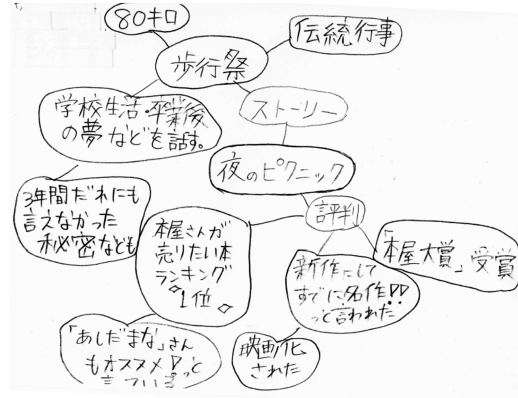 80キロ
伝統行事
歩行祭
学校生活・卒業後
の夢などを話す。
ストーリー
夜のピクニック
3年間だれにも
言えなかった
秘密なども
本屋さんが
売りたい本
ランキング
1位
評判
「本屋大賞」受賞
新作にして
すでに名作!!
っと言われた
「あしだまな」さん
もオススメ!っと
言っている
映画化
された